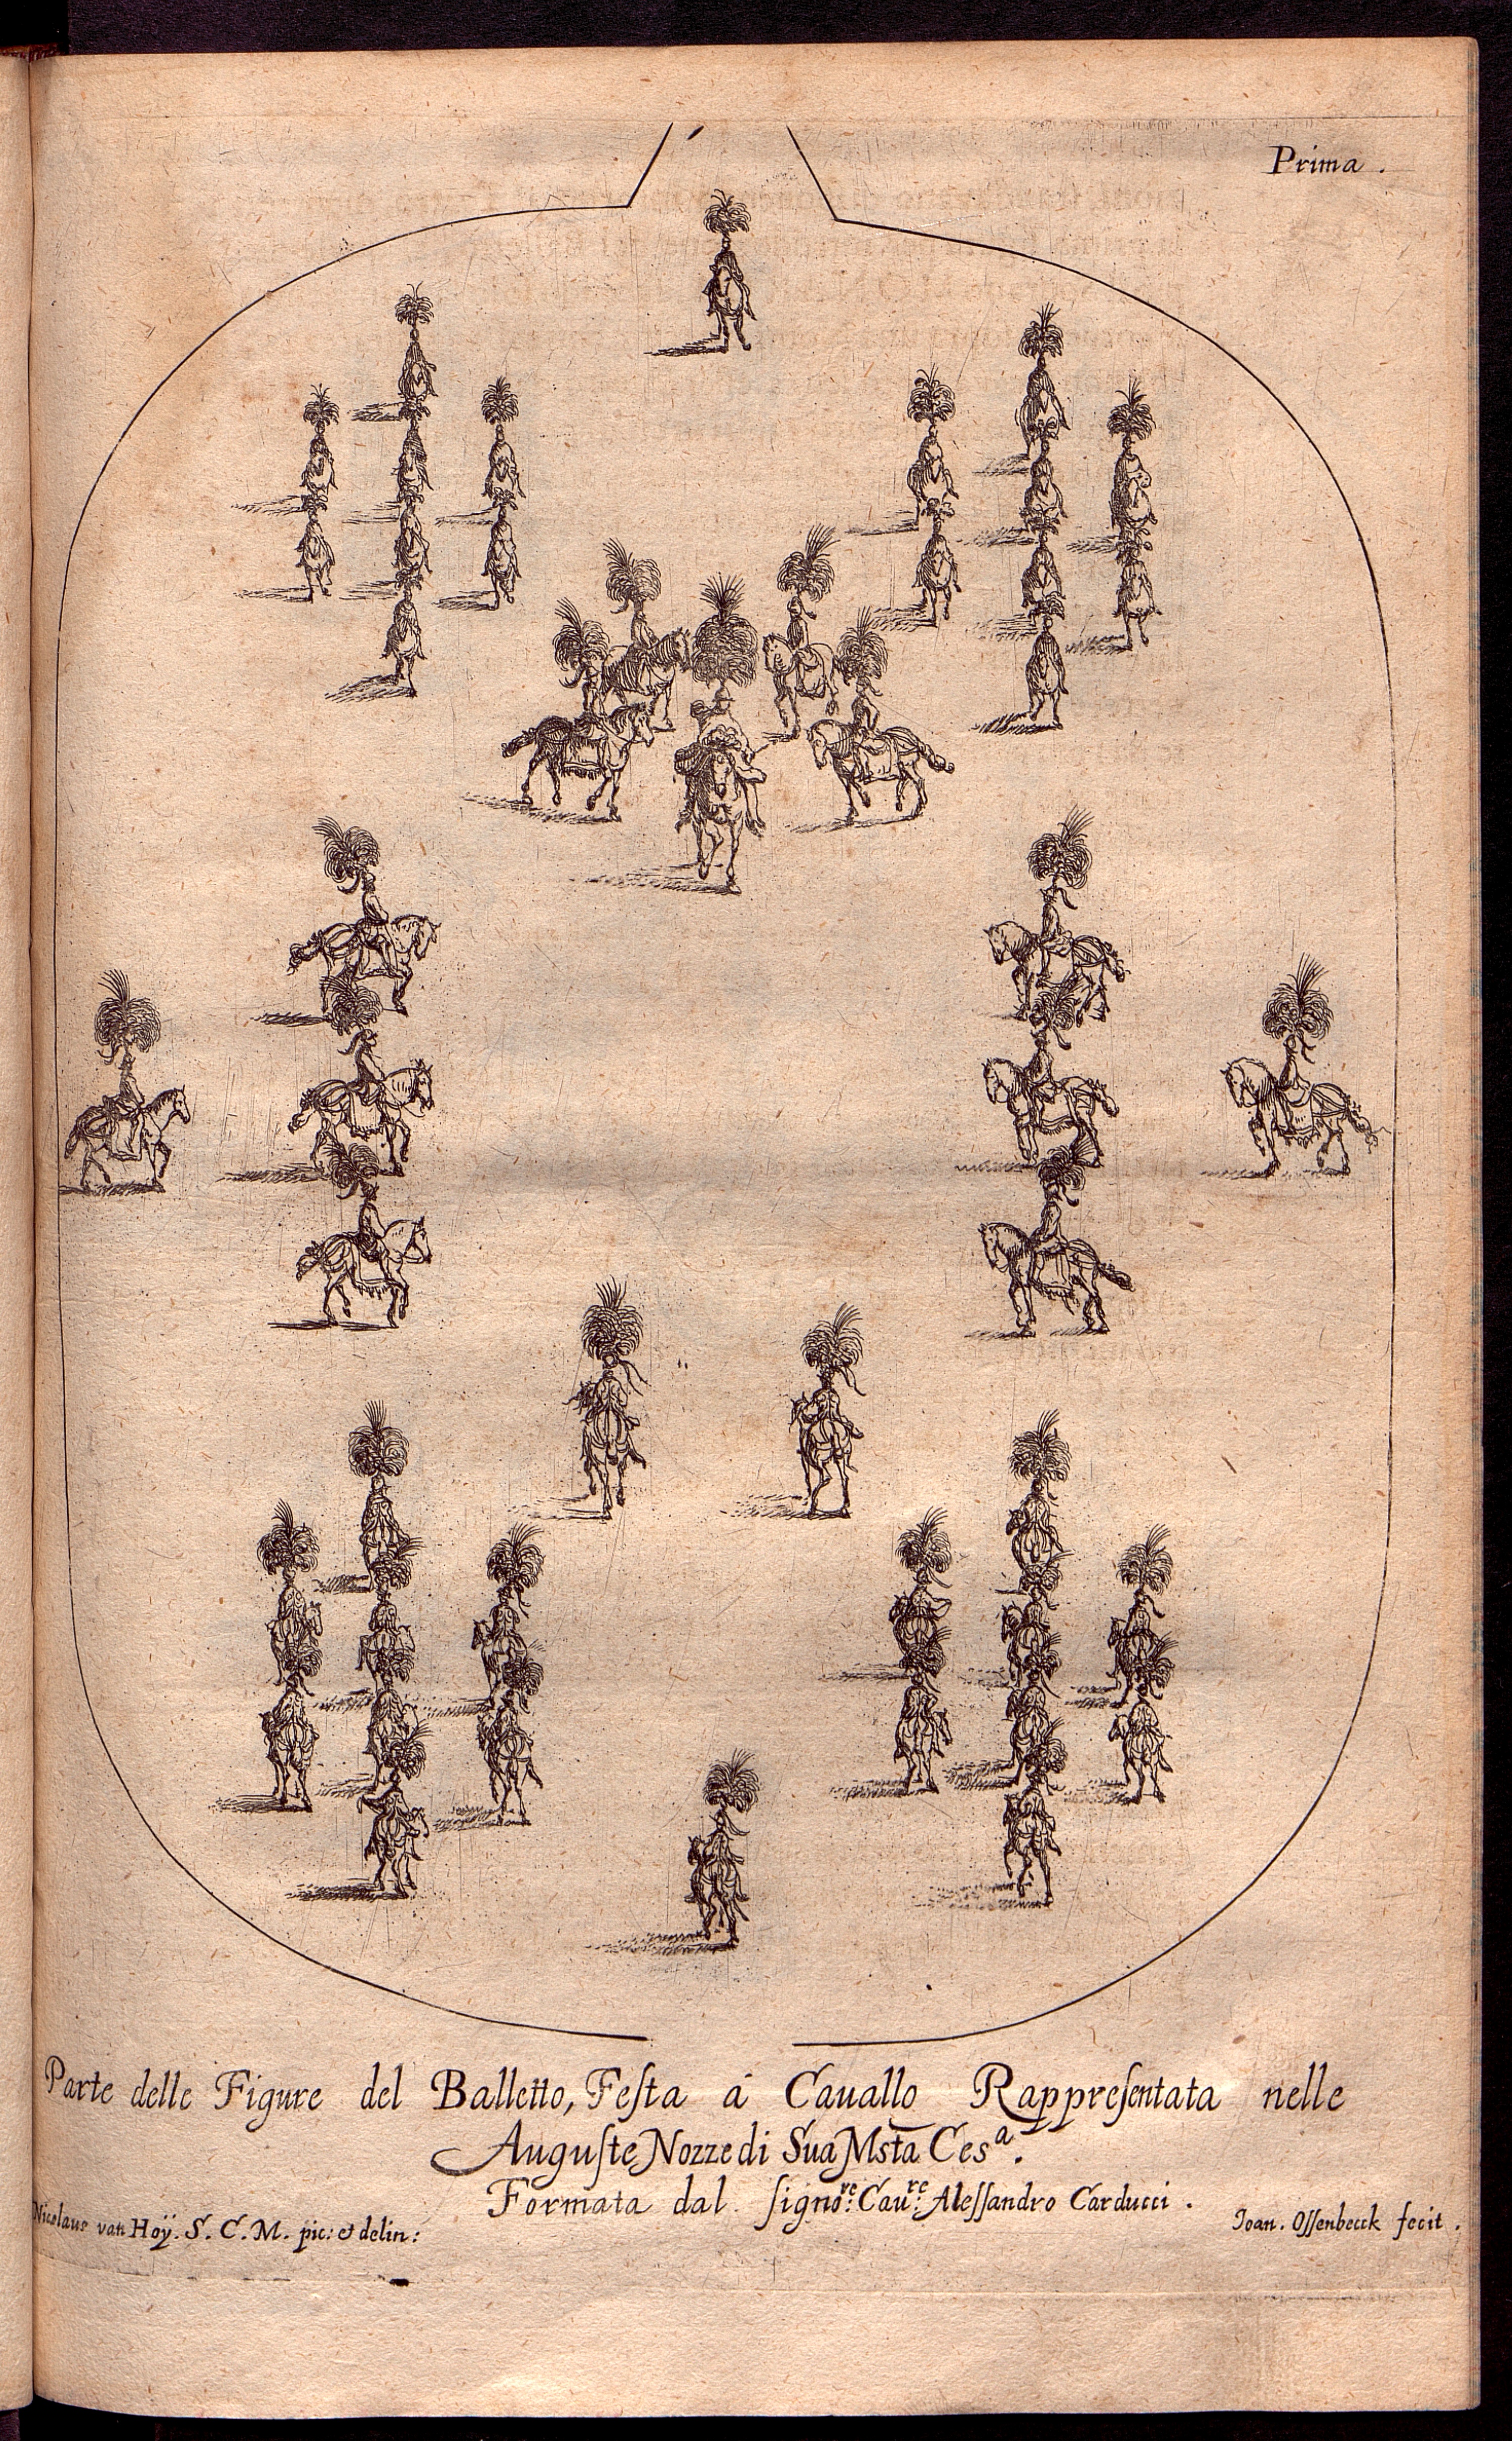 Prima.
Parte delle Figure del Balletto, Feſta á Cauallo Rappreſentata nelle
Auguſte Nozze di Sua Msta Ces.ª
Formata dal ſignore: Caure: Aleſſandro Carducci.
Nicolaus van Hoÿ. S. C. M. pic: et delin:
Joan. Oſſenbeeck fecit.